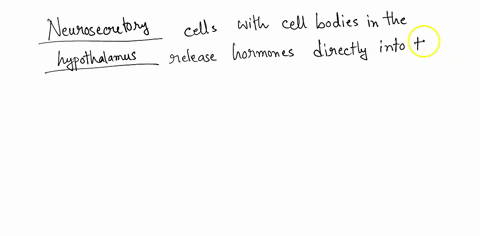 Neurosecretory cells with cell bodies in the
hypothalamus release hormones directly into t